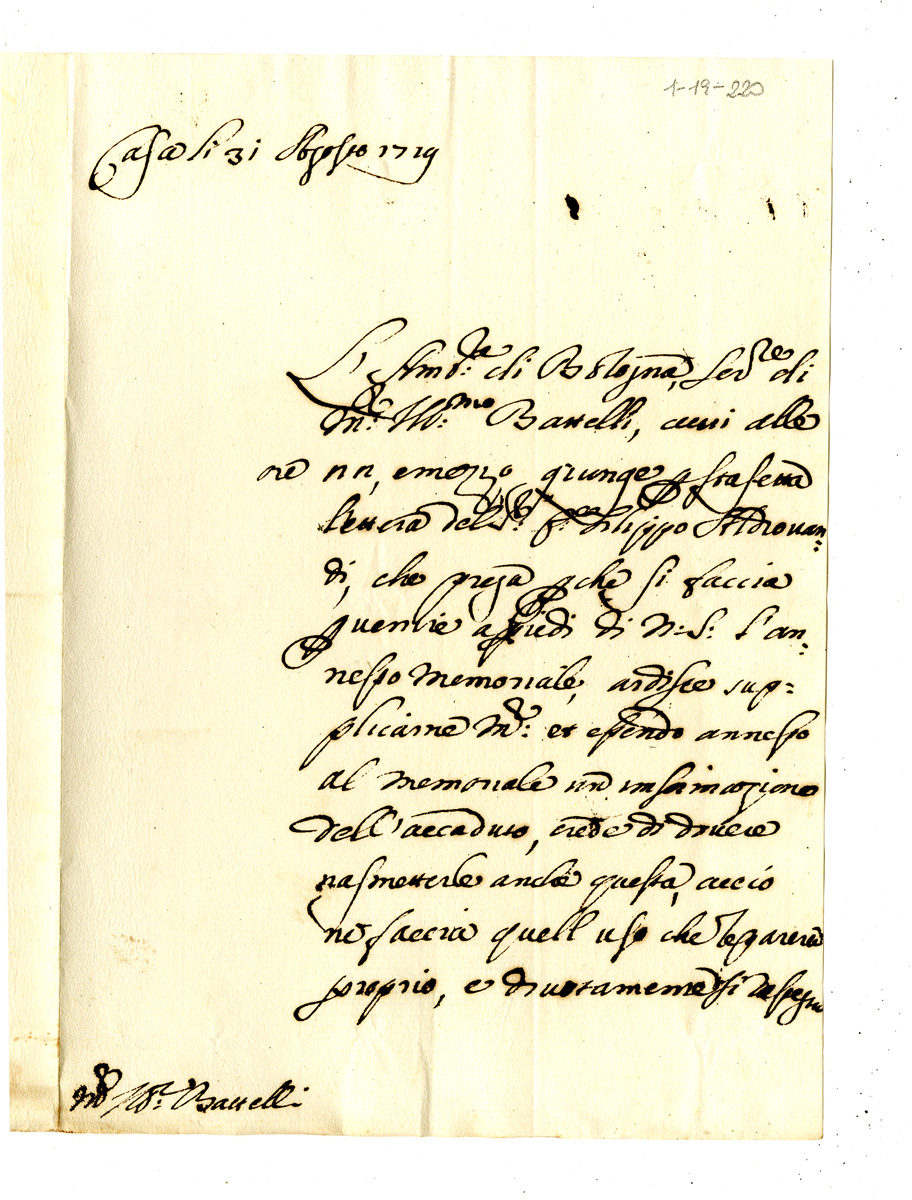 1-19-220
Casa li 31 Agosto 1719
L'Amb.re di Bologna, Ser.re di
M.r Ill.mo Battelli, cui alle
ore nn, e mezzo giunge p staffetta
lettera del S.r Filippo Aldrovan=
di, che prega p che si faccia
pvenire a piedi di N: S: l'an=
nesso Memoriale, ardisce sup=
plicarne M.r et essendo annesso
al Memoriale un informazione
dell'accaduto, crede di dovere
trasmetterle anche questa, accio
ne faccia quell uso che le parerà
proprio, e divotamente si rassegna
M.r Battelli